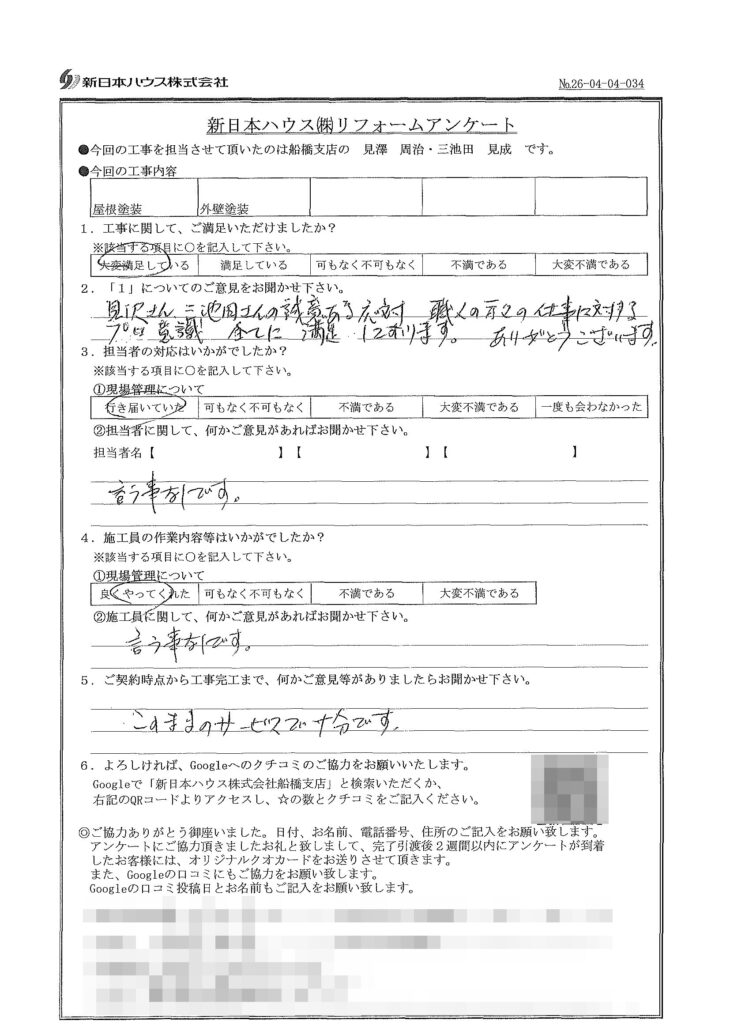 新日本ハウス株式会社
№26-04-04-034
新日本ハウス㈱リフォームアンケート
●今回の工事を担当させて頂いたのは船橋支店の 見澤 周治・三池田 見成 です。
●今回の工事内容
屋根塗装 外壁塗装
1．工事に関して、ご満足いただけましたか？
※該当する項目に○を記入して下さい。
大変満足している 満足している 可もなく不可もなく 不満である 大変不満である
2．「1」についてのご意見をお聞かせ下さい。
見沢さん 三池田さんの誠意ある応対 職人の方々の仕事に対する
プロ意識 全てに満足しております。 ありがとうございます。
3．担当者の対応はいかがでしたか？
※該当する項目に○を記入して下さい。
①現場管理について
行き届いていた 可もなく不可もなく 不満である 大変不満である 一度も会わなかった
②担当者に関して、何かご意見があればお聞かせ下さい。
担当者名【 】【 】【 】
言う事なしです。
4．施工員の作業内容等はいかがでしたか？
※該当する項目に○を記入して下さい。
①現場管理について
良くやってくれた 可もなく不可もなく 不満である 大変不満である
②施工員に関して、何かご意見があればお聞かせ下さい。
言う事なしです。
5．ご契約時点から工事完工まで、何かご意見等がありましたらお聞かせ下さい。
このままのサービスで十分です。
6．よろしければ、Googleへのクチコミのご協力をお願いいたします。
Googleで「新日本ハウス株式会社船橋支店」と検索いただくか、
右記のQRコードよりアクセスし、☆の数とクチコミをご記入ください。
◎ご協力ありがとう御座いました。日付、お名前、電話番号、住所のご記入をお願い致します。
アンケートにご協力頂きましたお礼と致しまして、完了引渡後２週間以内にアンケートが到着
したお客様には、オリジナルクオカードをお送りさせて頂きます。
また、Googleの口コミにもご協力をお願い致します。
Googleの口コミ投稿日とお名前もご記入をお願い致します。